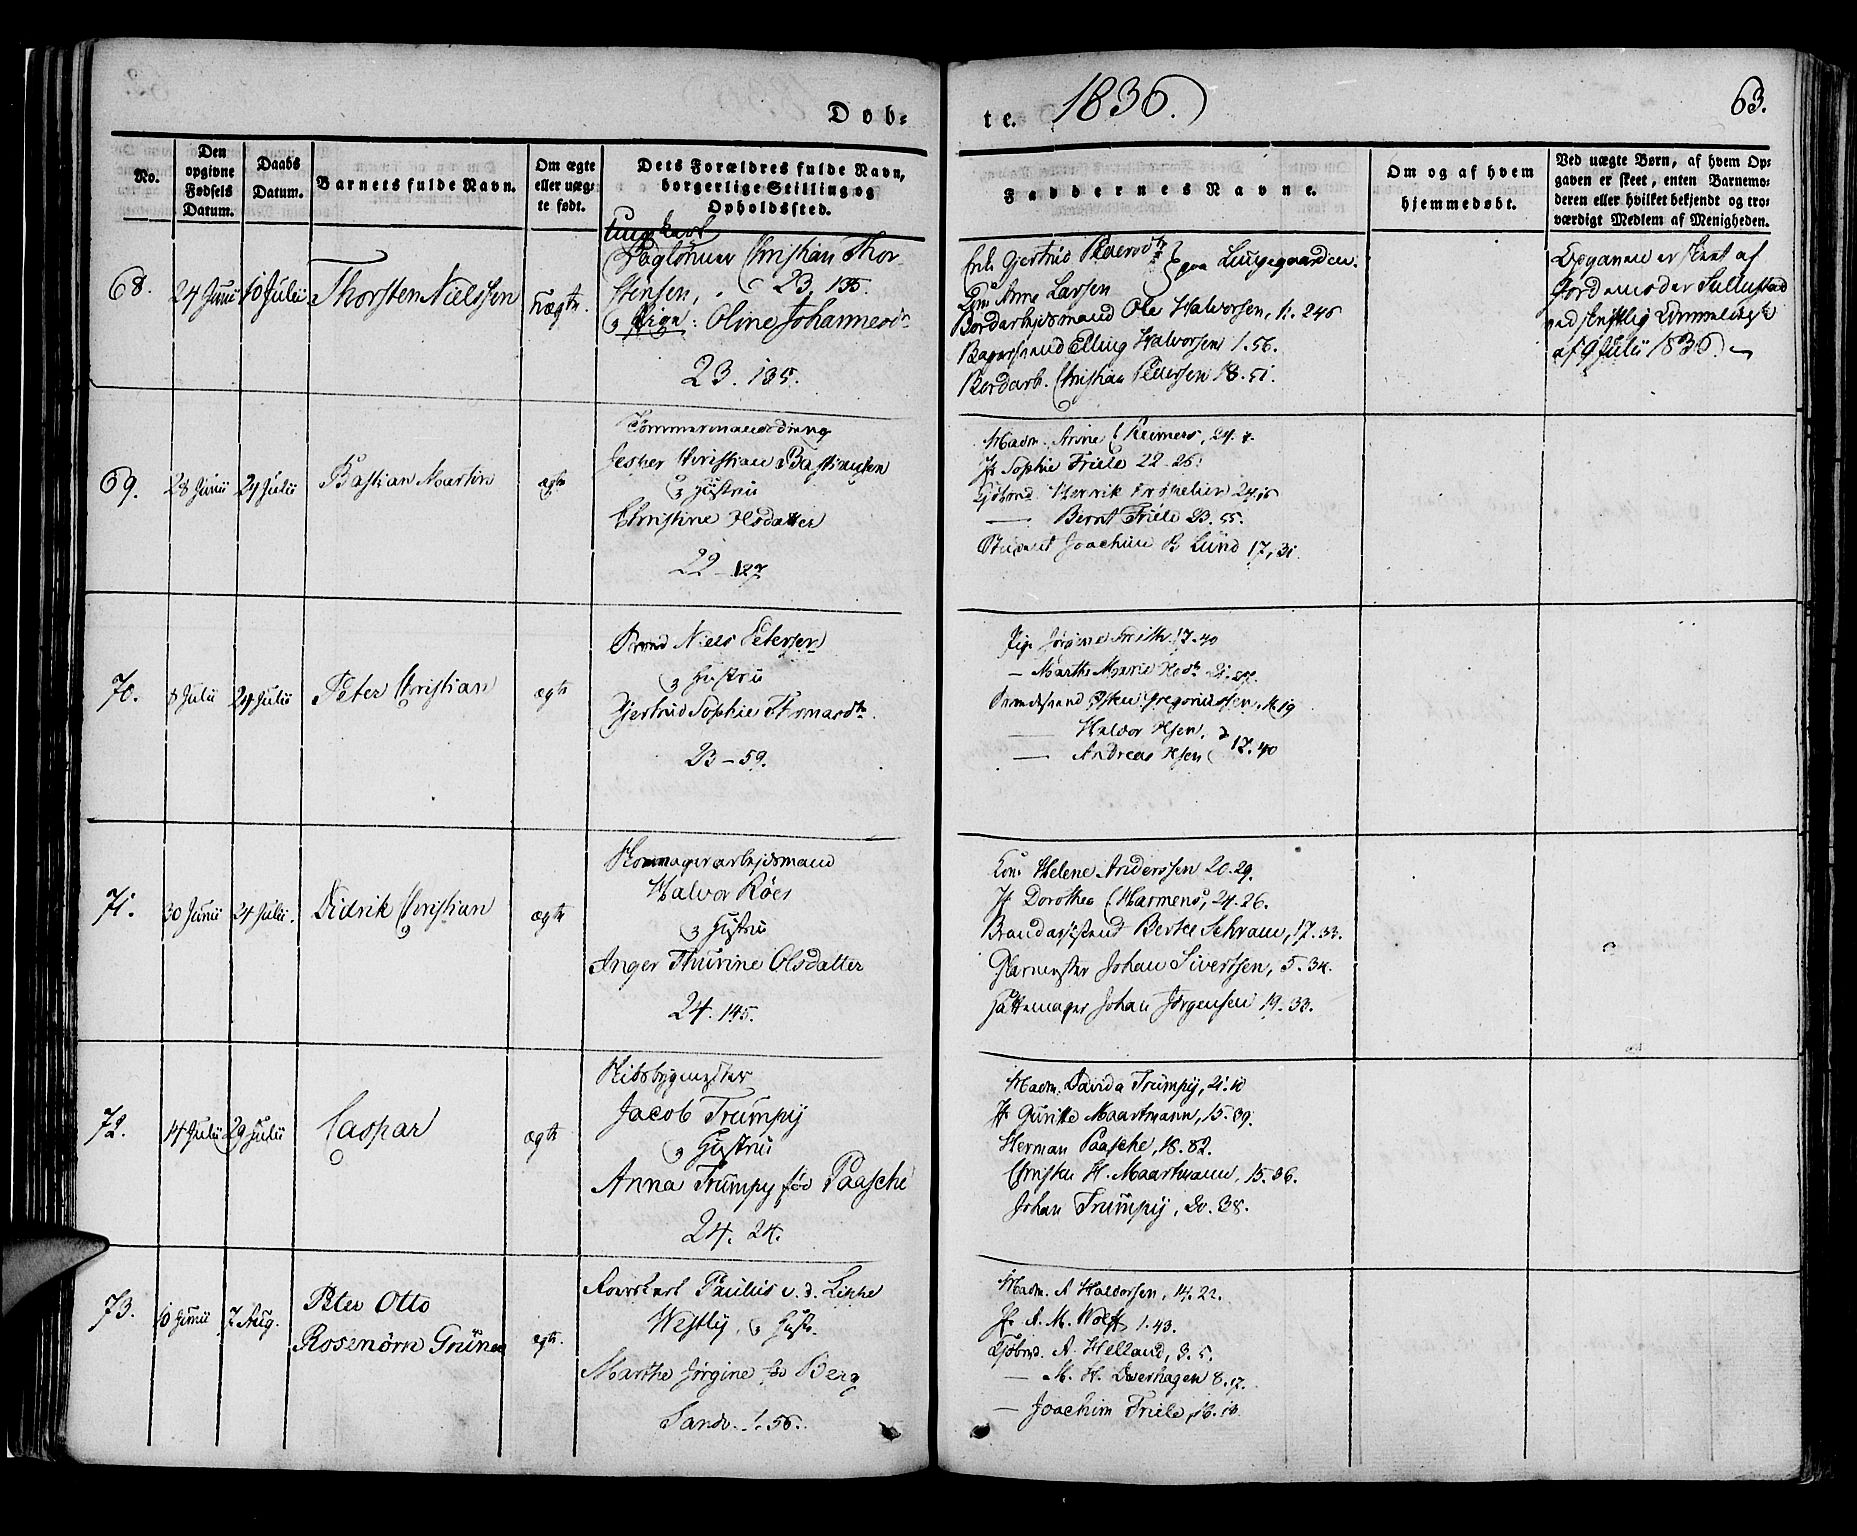 Døb-
te. 1836.
63.
No.
Den opgivne Fødsels Datum.
Daabs Datum.
Barnets fulde Navn.
Om ægte eller uæg-te født.
Dets Forældres fulde Navn, borgerlige Stilling og Opholdssted.
Faddernes Navne.
Om og af hvem hjemmedøbt.
Ved uægte Børn, af hvem Op-gaven er skeet, enten Barnemo-deren eller hvilket bekjendt og tro-værdigt Medlem af Menigheden.
68.
24 Junii
10 Julii
Thorsten Nielssen
Uægte.
Ungkarl
Daglønner Christian Thor
stensen, 23. 135.
Pige: Oline Johannesdr
23. 135.
Enke Gjertrud Pedersdtr
Kone Anne Larsen
paa Lungegaarden.
Bordarbejdsmand Ole Halvorsen, 11. 246
Bagersvend Elling Halvorsen 1.56.
Bordarb. Christian Pedersen 18.51.
Opgaven er skeet af
Jordemoder
ved skriftlig
af 9 Julii 1836.
69.
28 Junii
24 Julii
Bastian Martin
ægte
Tømmermandsdreng
Jesper Christian Bastiansen
og Hustrue
Christine Olsdatter
22 - 127
Madm. Anne C Reimers, 24. 7.
Jf Sophie Friele 22-26.
Kjøbmd. Henrik 24.16
— Bernt Friele 23.55.
Student Joachim B Lund 17,31.
70.
8 Julii
24 Julii
Peter Christian
ægte
Niels Petersen
og Hustrue
Gjertrud Sophie Thomasdtr.
23 - 59.
Pige Jørgine Frith 17.40
— Marthe Marie
Gregoriussen, 11.19
— Halvor Olsen,
— Andreas Olsen
17.40
71.
30 Junii
24 Julii.
Didrik Christian
ægte
Skomagerarbejdsmand
Halvor Röes
og Hustrue
Inger Thurine Olsdatter
24. 145.
Kone Helene Anderssen 20.29.
Jf Dorothea C Harmens, 24.26.
Bertel Schram, 17.33.
Glarmester Johan Sivertsen, 5.34.
Pottemager Johan Jørgensen 19.33.
72.
14 Julii
29 Julii
Caspar
ægte
Skibsbygmester
Jacob Trumpÿ
og Hustrue
Anna Trumpy fød Paasche
24. 24.
Madm. Davida Trumpÿ, 21.10
Jf Guritte Maartmann, 15.39.
Herman Paasche, 18.82.
Christen H. Maartmann, 15.36.
Johan Trumpÿ, 20.38.
73.
10 Junii
7 Aug.
Peter Otto
Rosenørn Grüner
ægte.
Paulus v. d. Lippe
Westlÿ, og Hustr.
Marthe Jørgine fød Berg
Sandv. 1.56.
Madm. A Haldorsen, 14.22.
Jf. A. M. Wolff 1.43.
Kjøbmd. A. Helland, 3.5.
— M. H. 8.17.
— Joachim Friele, 16.10.